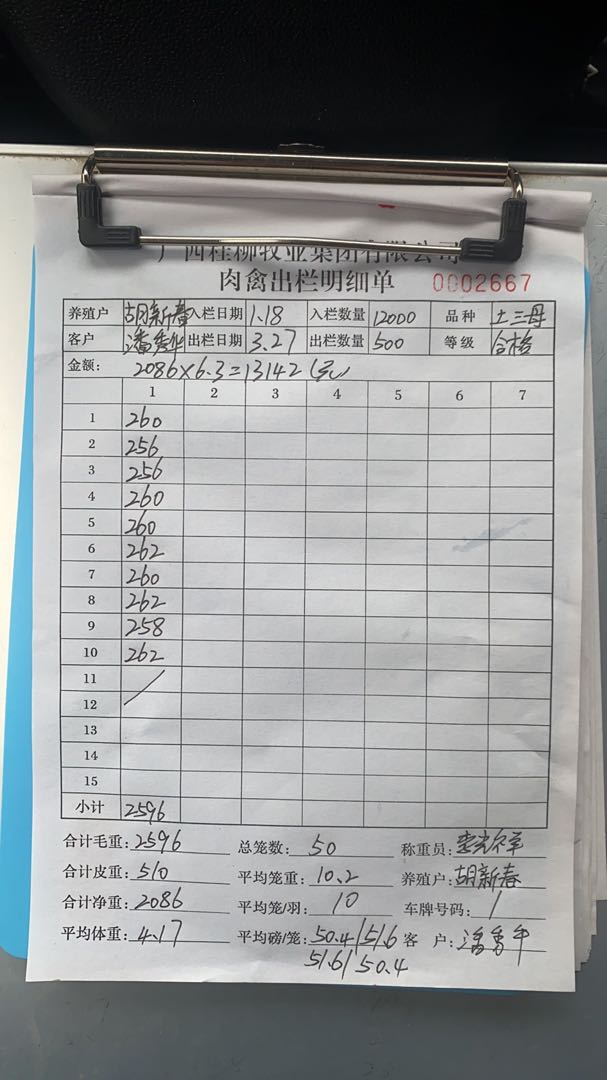 广西桂柳牧业集团有限公司
肉禽出栏明细单 0002667
养殖户 胡新春 入栏日期 1.18 入栏数量 12000 品种 土三母
客户 潘秀华 出栏日期 3.27 出栏数量 500 等级 合格
金额: 2086×6.3=13142(元)
1 2 3 4 5 6 7
1 260
2 256
3 256
4 260
5 260
6 262
7 260
8 262
9 258
10 262
11 /
12
13
14
15
小计 2596
合计毛重: 2596 总笼数: 50 称重员:
合计皮重: 510 平均笼重: 10.2 养殖户: 胡新春
合计净重: 2086 平均笼/羽: 10 车牌号码: /
平均体重: 4.17 平均磅/笼: 50.4/51.6 客 户:
51.6/50.4